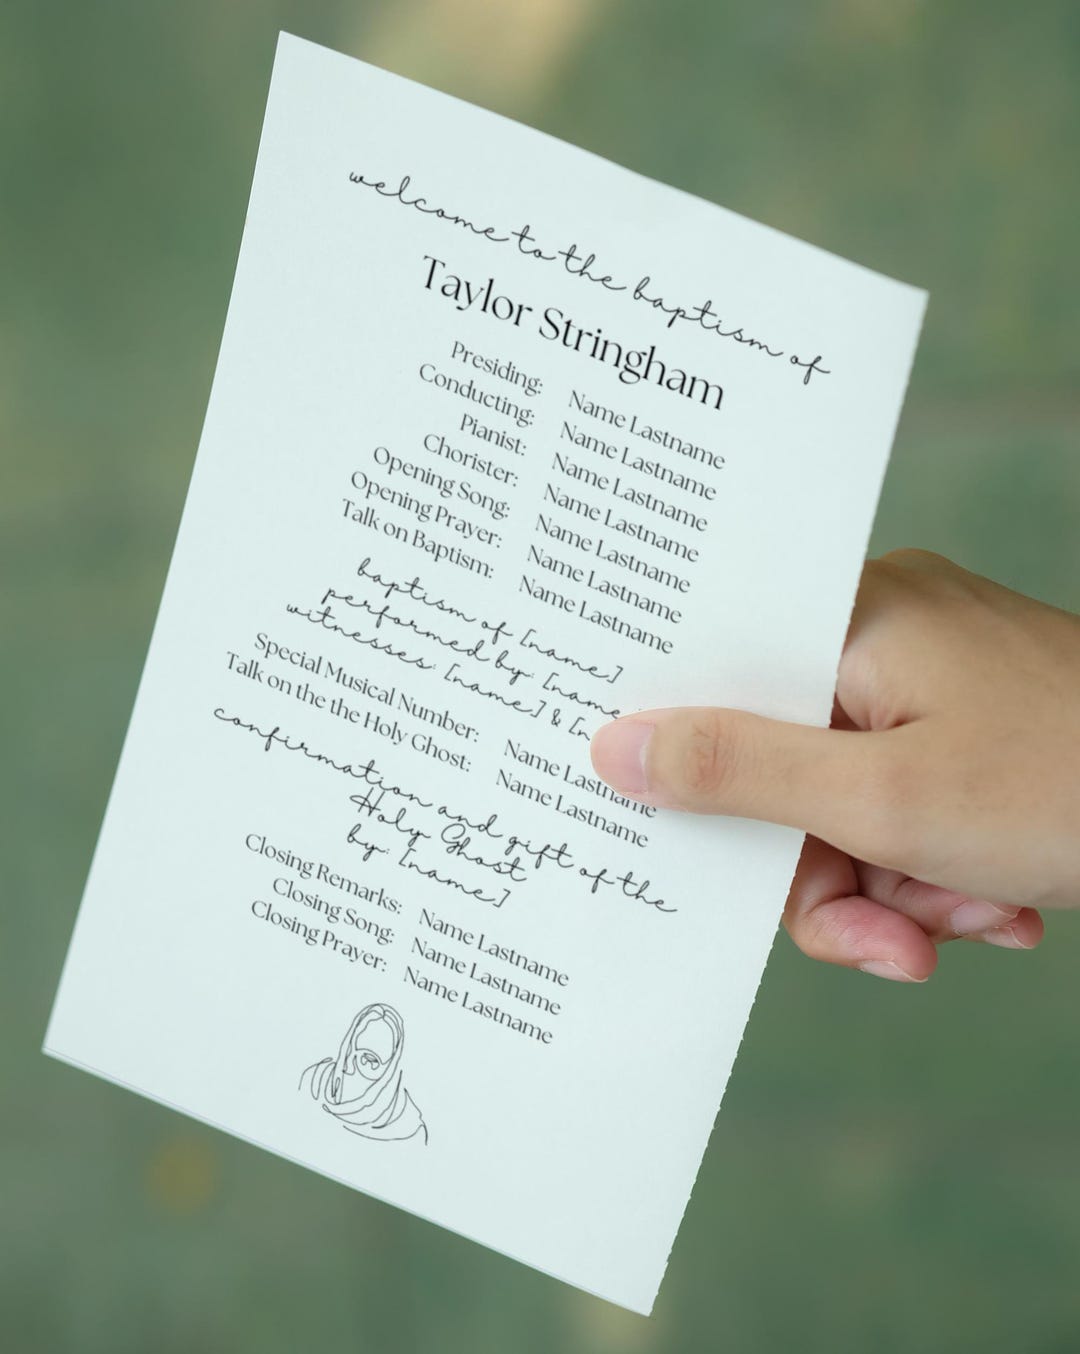 welcome to the baptism of
Taylor Stringham
Presiding: Name Lastname
Conducting: Name Lastname
Pianist: Name Lastname
Chorister: Name Lastname
Opening Song: Name Lastname
Opening Prayer: Name Lastname
Talk on Baptism: Name Lastname
baptism of [name]
performed by: [name
witnesses: [name] & [n
Special Musical Number: Name Lastname
Talk on the the Holy Ghost: Name Lastname
confirmation and gift of the
Holy Ghost
by: [name]
Closing Remarks: Name Lastname
Closing Song: Name Lastname
Closing Prayer: Name Lastname